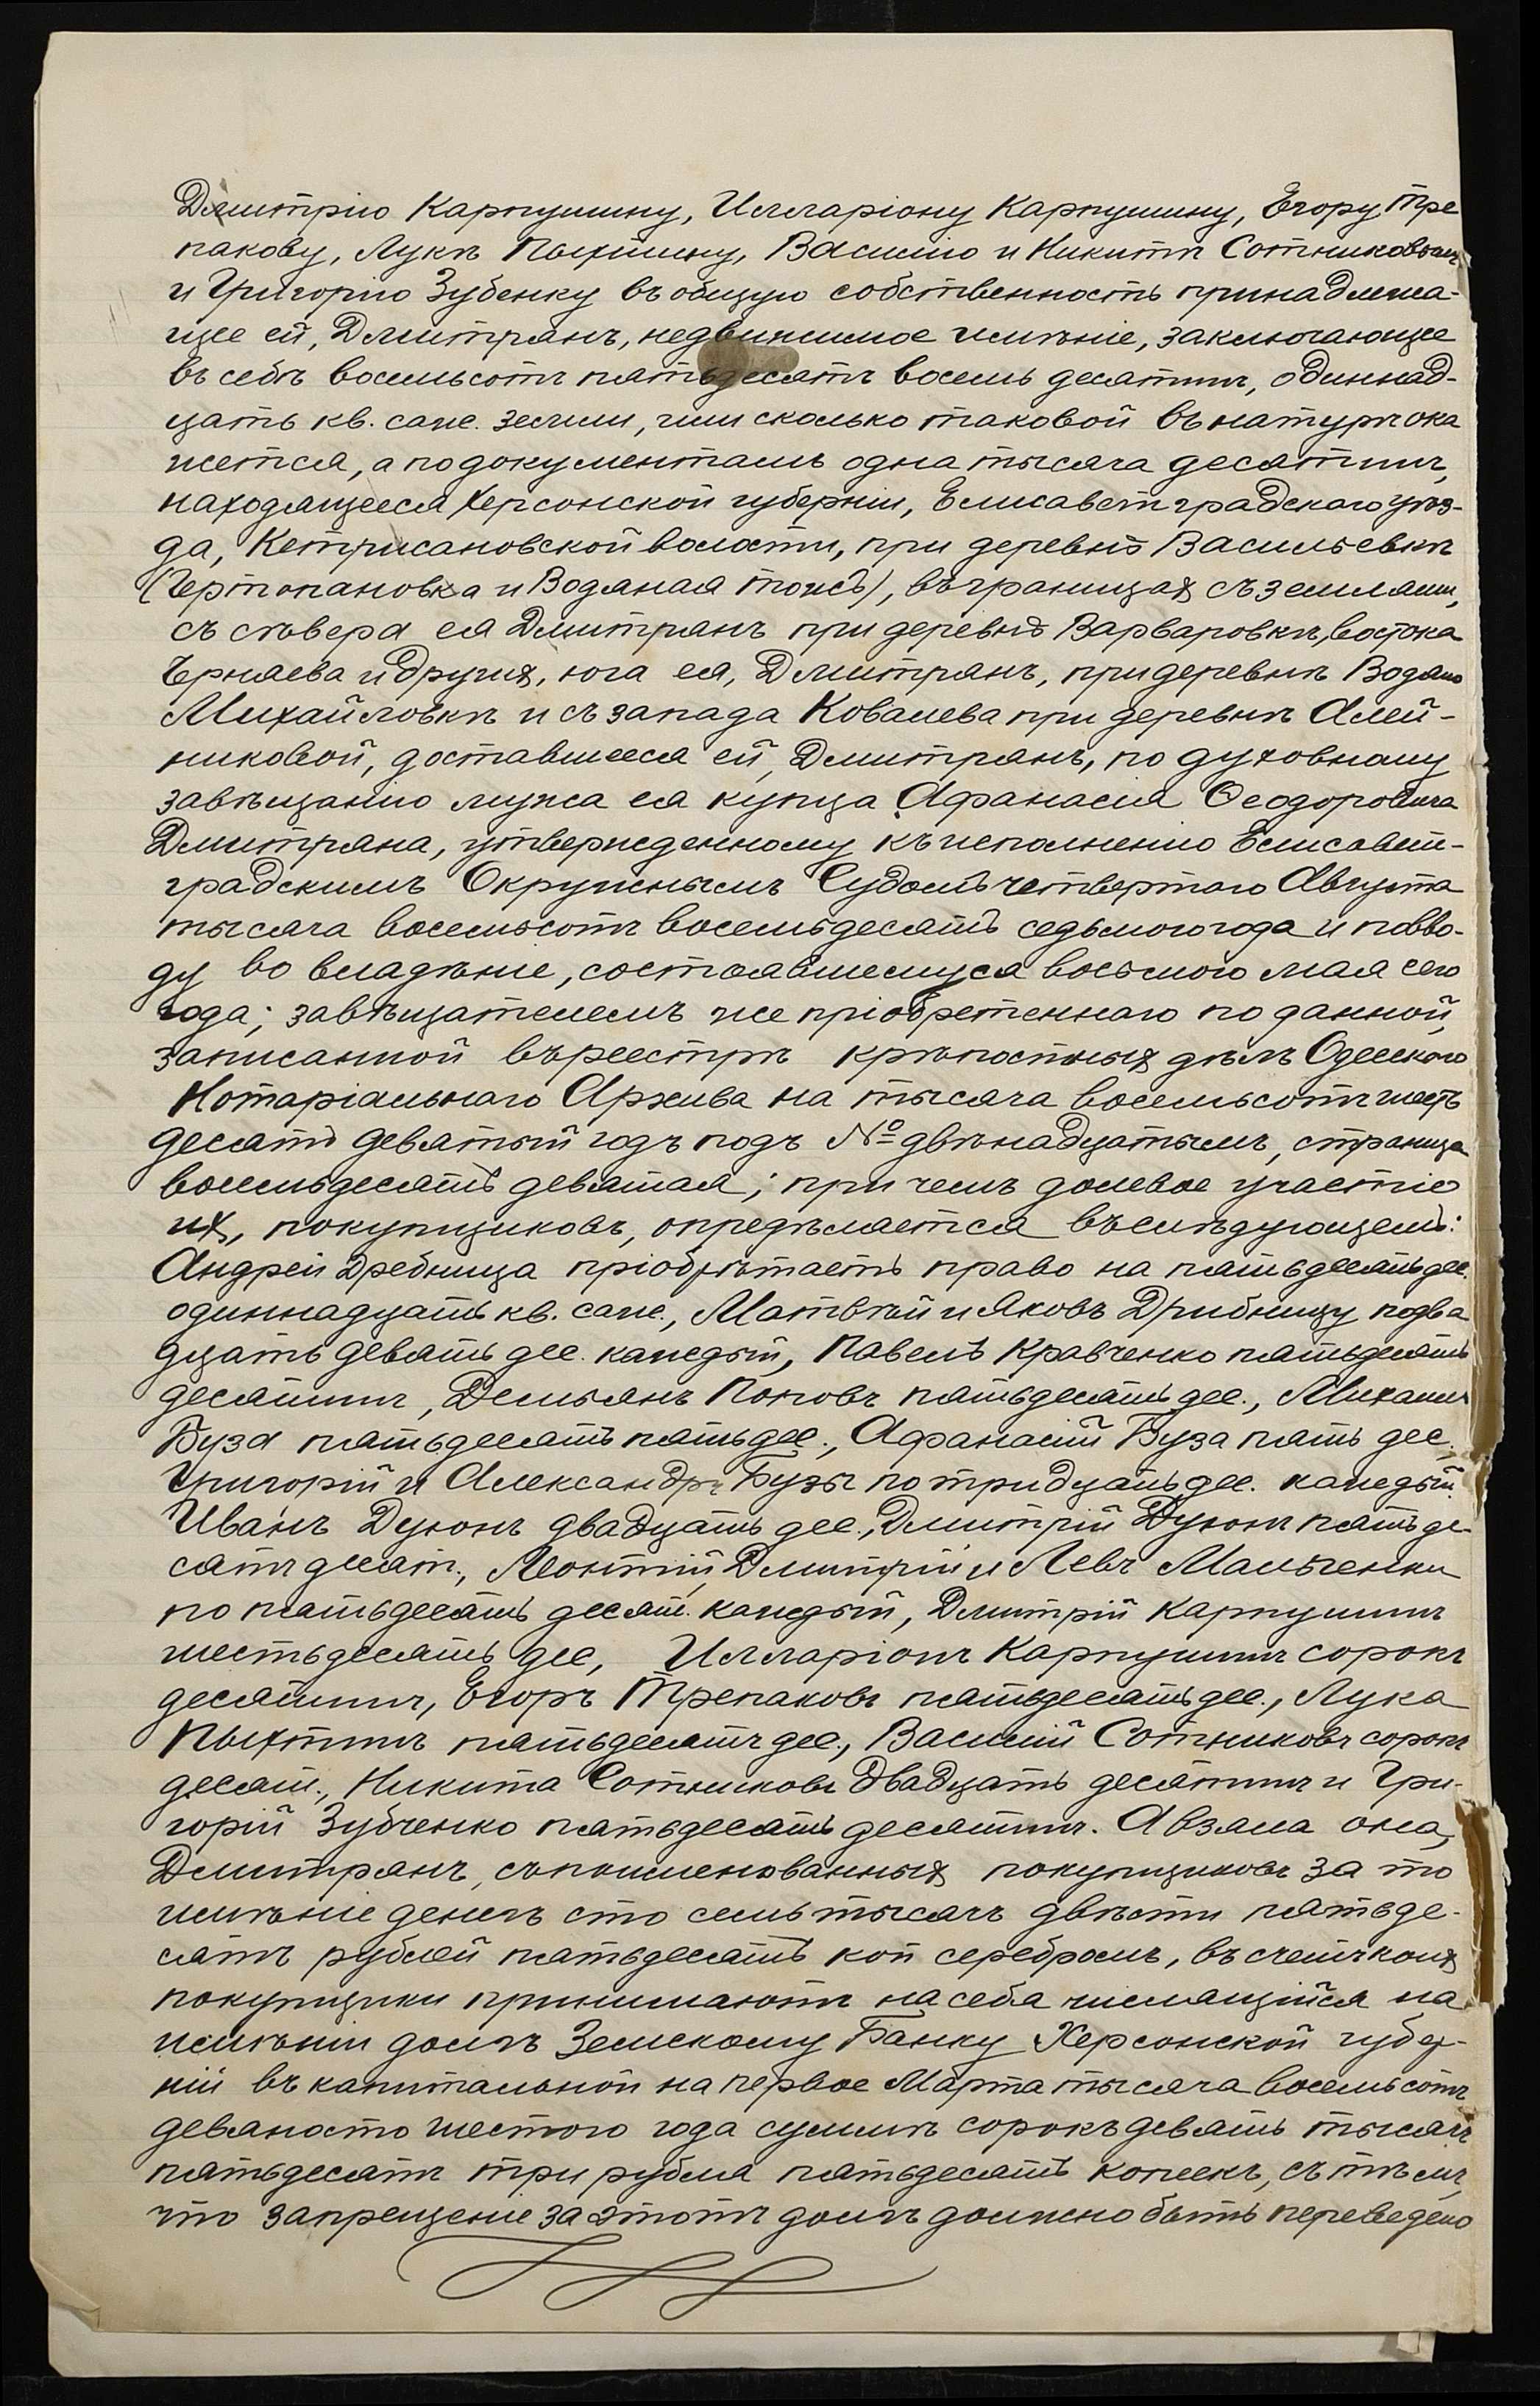 Дмитрію Карпушину, Илларіону Карпушину, Егору Тре
пакову, Лукѣ Пыхтину, Василію и Никитѣ Сотниковымъ
и Григорію Зубенку въ общую собственность принадлежа-
щее ей, Дмитрянъ, недвижимое имѣніе, заключающее
въ себѣ восемьсотъ пятьдесятъ восемь десятинъ, одиннад-
цать кв. саж. земли, или сколько таковой въ натурѣ ока
жется, а по документамъ одна тысяча десятинъ,
находящееся Херсонской губерніи, Елисаветградскаго уѣз-
да, Кетрисановской волости, при деревнѣ Васильевкѣ
(Чертопановка и Водяная тожъ), въ границахъ съ землями,
съ сѣвера ея Дмитрянъ при деревнѣ Варваровкѣ, востока
Ерняева и другихъ, юга ея, Дмитрянъ, при деревнѣ Водяно
Михайловкѣ и съ запада Ковалева при деревнѣ Алей-
никовой, доставшееся ей, Дмитрянъ, по духовному
завѣщанію мужа ея купца Афанасія Ѳеодоровича
Дмитряна, утвержденному къ исполненію Елисавет-
градскимъ Окружнымъ Судомъ четвертаго Августа
тысяча восемьсотъ восемьдесятъ седьмого года и по вво-
ду во владѣніе, состоявшемуся восьмого мая сего
года; завѣщателемъ же пріобретеннаго по данной,
записанной въ реестрѣ крѣпостныхъ дѣлъ Одесскаго
Нотаріальнаго Архива на тысяча восемьсотъ шесть
десятъ девятый годъ подъ № двѣнадцатымъ, страница
восемьдесятъ девятая; при чемъ долевое участіе
ихъ, покупщиковъ, опредѣляется въ слѣдующемъ:
Андрей Дребница пріобрѣтаетъ право на пятьдесятъ дес.
одиннадцать кв. саж., Матвѣй и Яковъ Дрибницу по два
дцать девять дес. каждый, Павелъ Кравченко пятьдесятъ
десятинъ, Демьянъ Поповъ пятьдесятъ дес., Михаилъ
Буза пятьдесятъ пять дес., Афанасій Буза пять дес.,
Григорій и Александръ Бузы по тридцать дес. каждый.
Иванъ Дуюнъ двадцать дес., Дмитрій Дуюнъ пятьде
сятъ десят., Леонтій, Дмитрій и Левъ Мальченки
по пятьдесятъ десят. каждый, Дмитрій Карпушинъ
шестьдесятъ дес, Илларіонъ Карпушинъ сорокъ
десятинъ, Егоръ Трепаковъ пятьдесятъ дес., Лука
Пыхтинъ пятьдесятъ дес., Василій Сотниковъ сорокъ
десят., Никита Сотниковъ двадцать десятинъ и Гри-
горій Зубченко пятьдесятъ десятинъ. А взяла она,
Дмитрянъ, съ поименованныхъ покупщиковъ за то
имѣніе денегъ сто семь тысячъ двѣсти пятьде-
сятъ рублей пятьдесятъ коп серебромъ, въ счетъ коихъ
покупщики принимаютъ на себя числящійся на
имѣніи долгъ Земскому Банку Херсонской губер-
ніи въ капитальной на первое Марта тысяча восемьсотъ
девяносто шестого года суммѣ сорокъ девять тысячъ
пятьдесятъ три рубля пятьдесятъ копеекъ, съ тѣмъ,
что запрещеніе за этотъ долгъ должно быть переведено